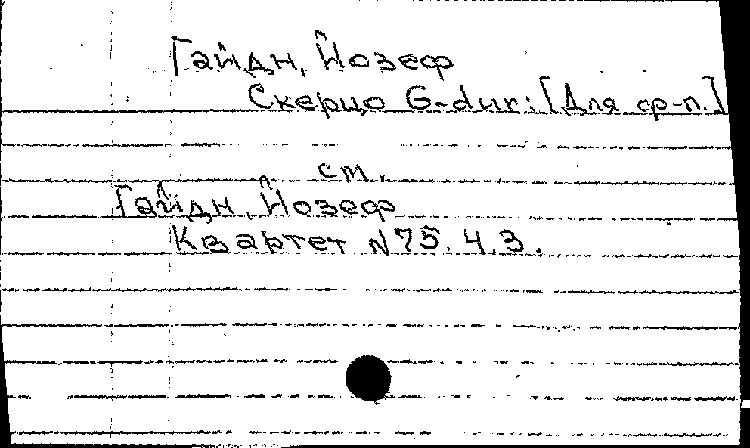 Гайдн, Йозеф
Скерцо G-dur: [Для ф-п.]
ст.
Гайдн, Йозеф
Квартет №75. Ч.3.